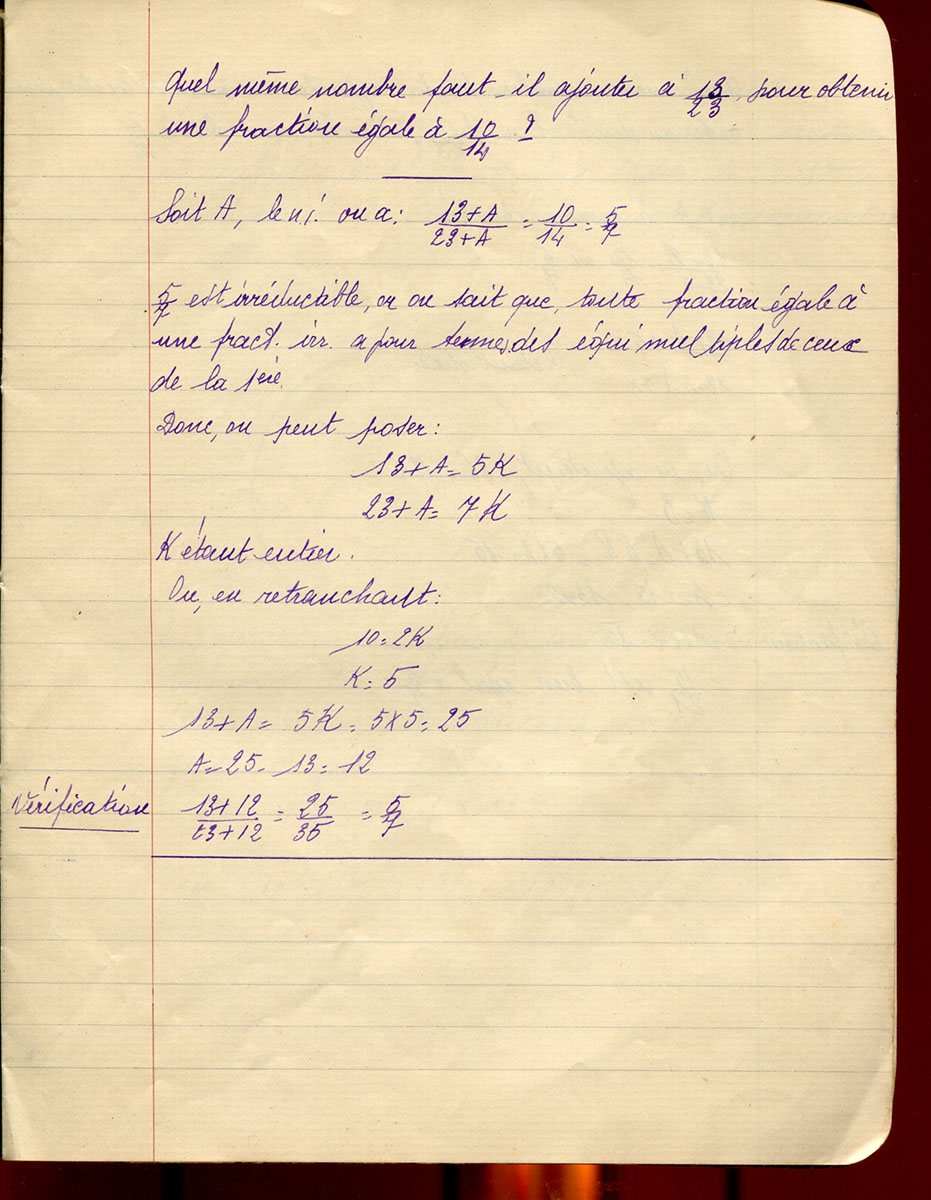 Quel même nombre faut-il ajouter à 13/23 pour obtenir
une fraction égale à 10/14 ?
Soit A, le n. on a : (13+A)/(23+A) = 10/14 = 5/7
5/7 est irréductible, or on sait que, toute fraction égale à
une fract. irr. a pour termes des équimultiples de ceux
de la 1ère.
Donc, on peut poser :
13+A = 5K
23+A = 7K
K étant entier.
Ou, en retranchant :
10 = 2K
K = 5
13+A = 5K = 5x5 = 25
A = 25 - 13 = 12
Vérification (13+12)/(23+12) = 25/35 = 5/7